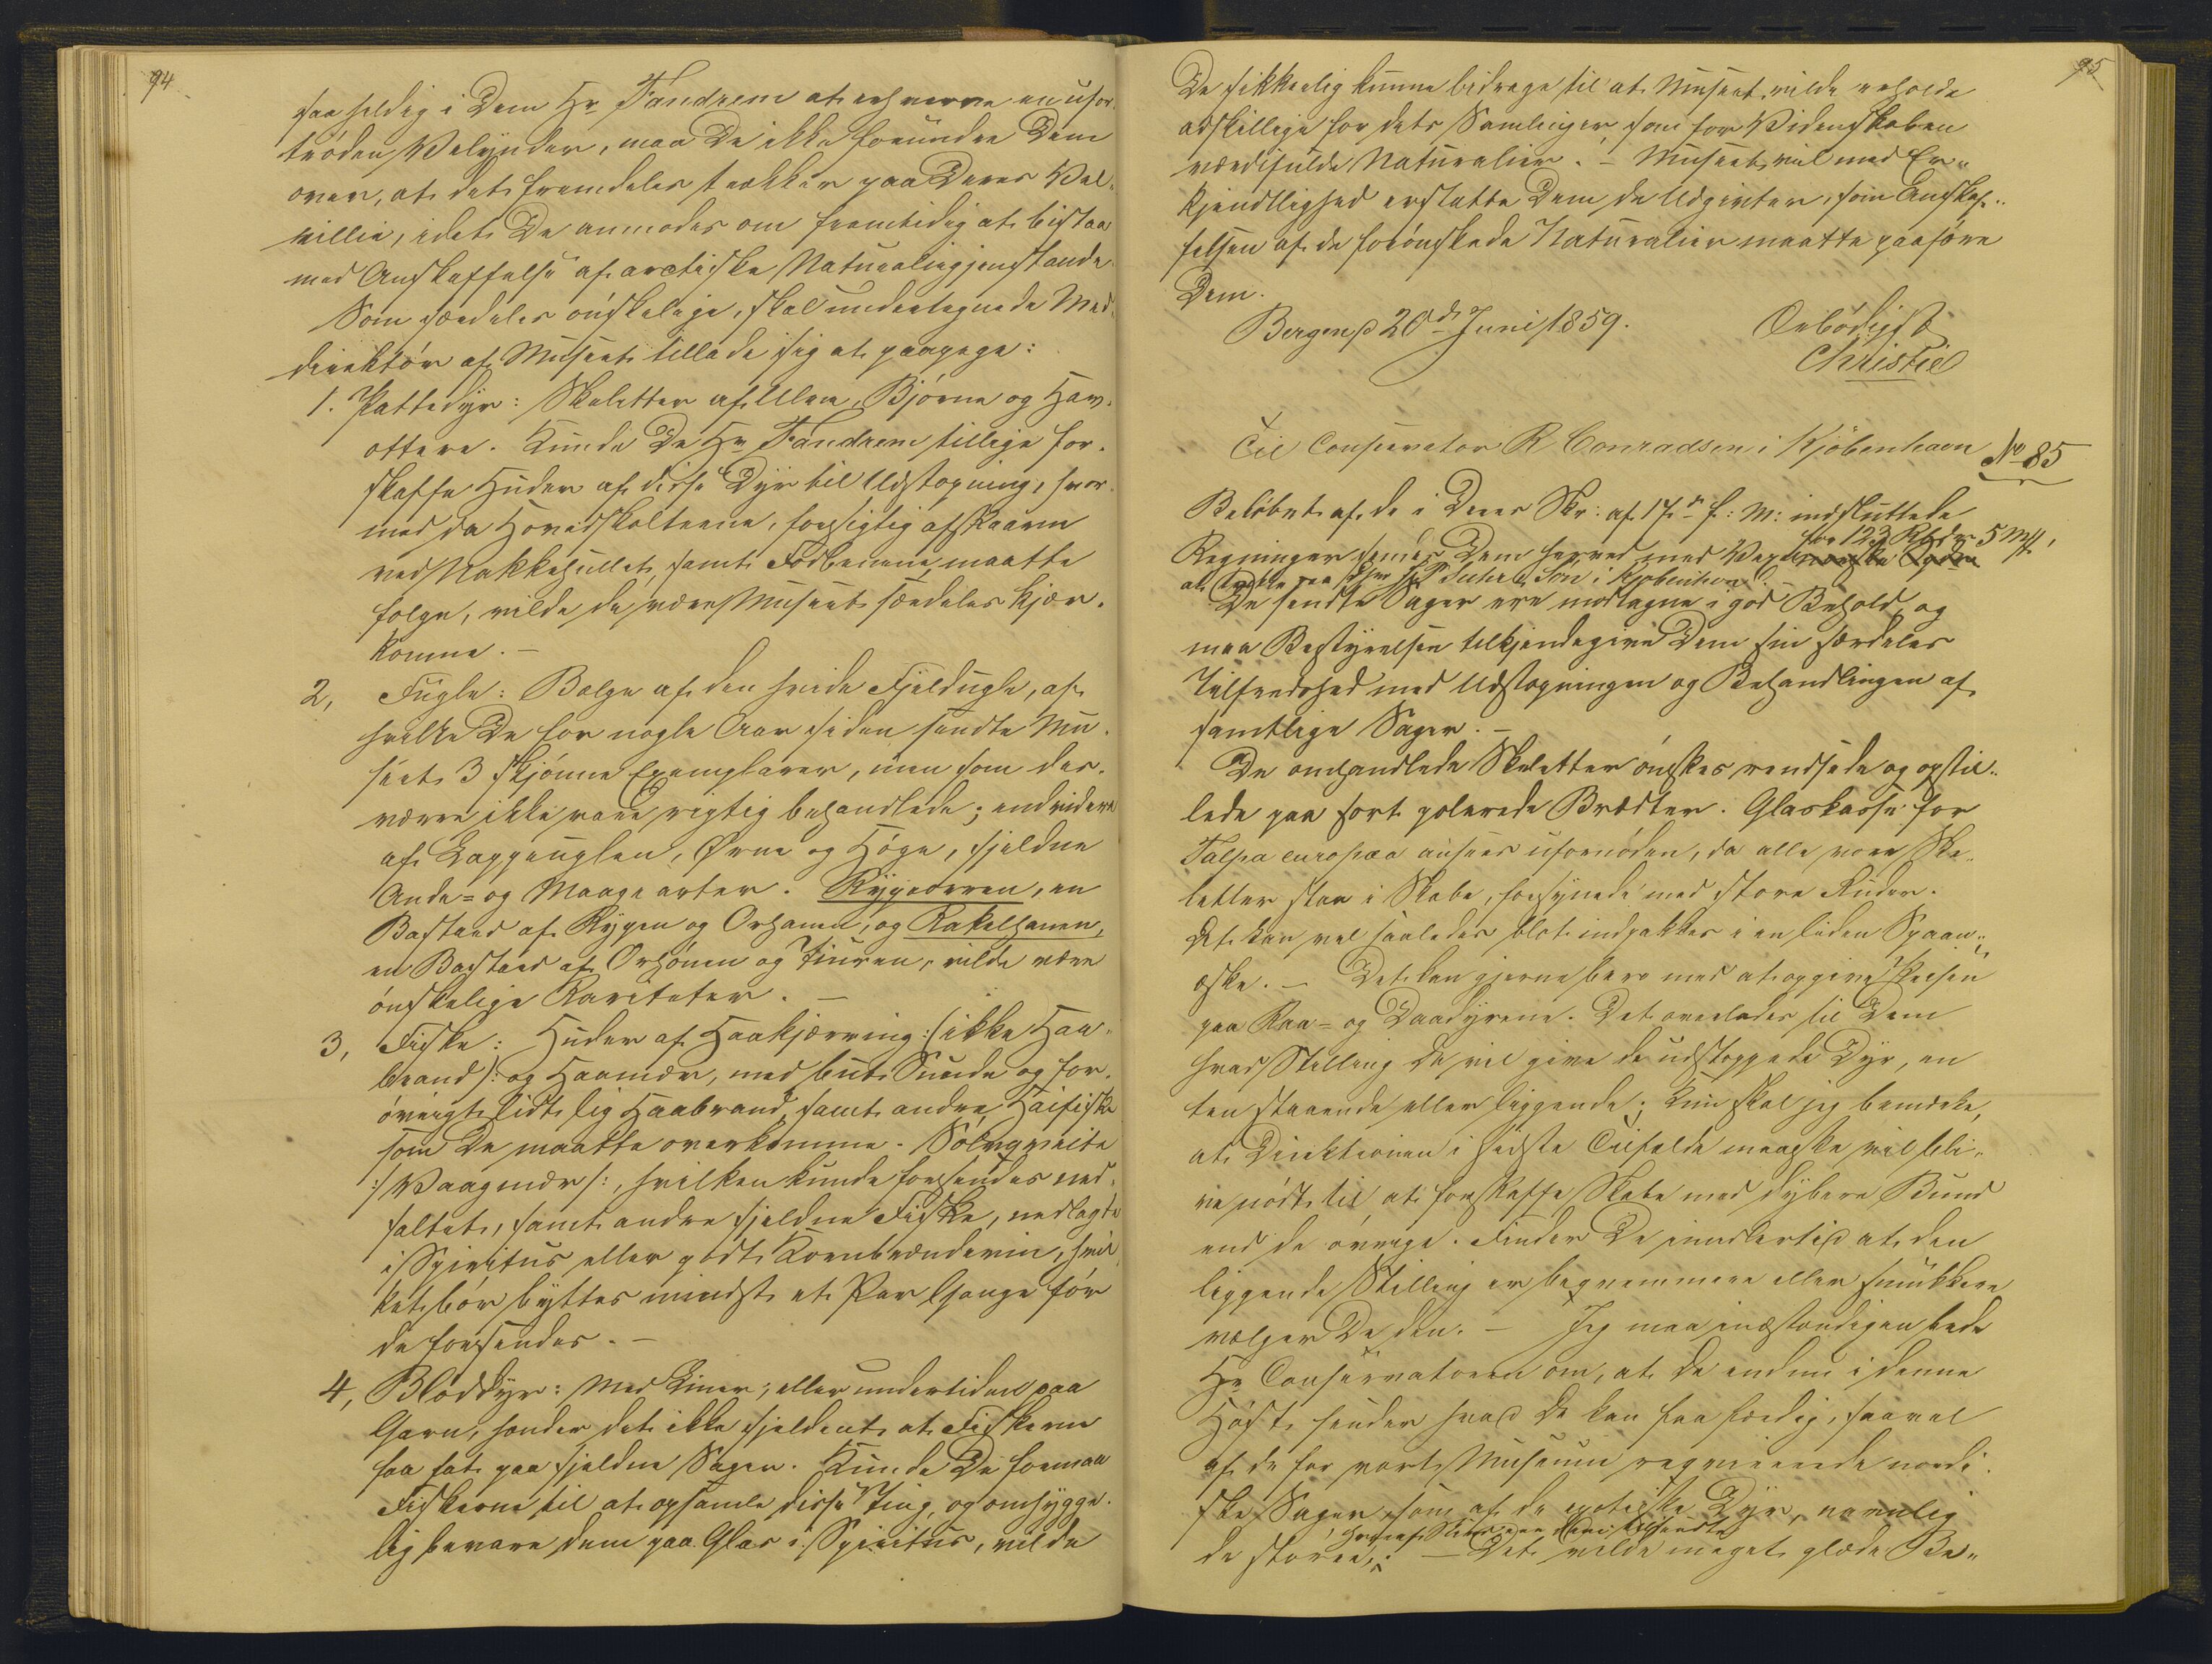 94
saa heldig i Dem Hr Fandrem at erhverve en ufor-
tröden Velynder, maa De ikke forundre Dem
over, at det fremdeles trækker paa Deres Vel-
villie, idet De anmodes om fremtidig at bistaa
med Anskaffelse af arctiske Naturaliegjenstande.
Som særdeles önskelige, skal undertegnede Med-
direktör af Museet tillade sig at paapege:
1. Pattedyr: Skeletter af Ulve, Björne og Hav-
ottere. Kunde De Hr Fandrem tillige for-
skaffe Huder af disse Dyr til Udstopning, hvor-
med da Hovedskallerne, forsigtig afskaarne
ved Nakkehullet, samt Fodbenene maatte
fölge, vilde de være Museet særdeles kjær-
komne. —
2, Fugle: Bælge af den hvide Fjeldugle, af
hvilke De for nogle Aar siden sendte Mu-
seet 3 skjönne Exemplarer, men som des-
værre ikke vare rigtig behandlede; endvidere
af Lappeuglen, Örne og Höge, sjeldne
Ande- og Maagearter. Rypeorren, en
Bastard af Rypen og Orhanen, og Rakelhanen,
en Bastard af Orhönen og Tiuren, vilde være
önskelige Rariteter. —
3, Fiske: Huder af Haakjærring :(ikke Haa-
brand): og Haamær, med but Snude og for-
övrigt lidt lig Haabrand, samt andre Haifiske
som De maatte overkomme. Sölvqveite
:/Vaagmær/:, hvilken kunde forsendes ned-
saltet, samt andre sjeldne Fiske, nedlagte
i Spiritus eller godt Kornbrændeviin, hvil-
ket bör byttes mindst et Par Gange för
de forsendes. —
4, Bloddyr: Med Liner, eller undertiden paa
Garn, hænder det ikke sjeldent at Fiskerne
faa fat paa sjeldne Sager. Kunde De formaa
Fiskerne til at opsamle disse Ting, og omhygge-
lig bevare dem paa Glas i Spiritus, vilde
95
De sikkerlig kunne bidrage til at Museet vilde erholde
adskillige for dets Samlinger som for Videnskaben
værdifulde Naturalier. — Museet vil med Er-
kjendtlighed erstatte Dem de Udgivter, som Anskaf-
felsen af de forönskede Naturalier maatte paaföre
Dem.
Bergen d 20de Juni 1859. Ærbödigst
Christie
Til Conservator R Conradsen i Kjöbenhavn No 85
Belöbet af de i Deres Skr: af 17de f: M: indsluttede
for 123 Rbdr 5 mk,
Regninger sendes Dem herved med Vexel
at trække paa H P Suhr & Sön i Kjöbenhavn.
De sendte Sager ere modtagne i god Behold, og
maa Bestyrelsen tilkjendegive Dem sin særdeles
Tilfredshed med Udstopningen og Behandlingen af
samtlige Sager. —
De omhandlede Skeletter önskes rendsede og opstil-
lede paa sort polerede Brædter. Glaskasse for
Talpa europæa ansees ufornöden, da alle vore Ske-
letter staa i Skabe, forsynede med store Ruder.
Det kan vel saaledes blot indpakkes i en liden Spaan-
æske. — Det kan gjerne bero med at opgive Prisen
paa Raa- og Daadyrene. Det overlades til Dem
hvad Stilling De vil give de udstoppede Dyr, en-
ten staaende eller liggende; kun skal jeg bemærke,
at Direktionen i sidste Tilfælde maaske vil bli-
ve nödt til at forskaffe Skabe med dybere Bund
end de övrige. Finder De imidlertid at den
liggende Stilling er beqvemmere eller smukkere
vælger De den. — Jeg maa indstændigen bede
Hr Conservatoren om, at De endnu i denne
Höst sender hvad De kan faa færdig, saavel
af de for vort Museum reqvirerede nordi-
ske Sager, som af de exotiske Dyr, navnlig
de större; — Det vilde meget glæde Be-